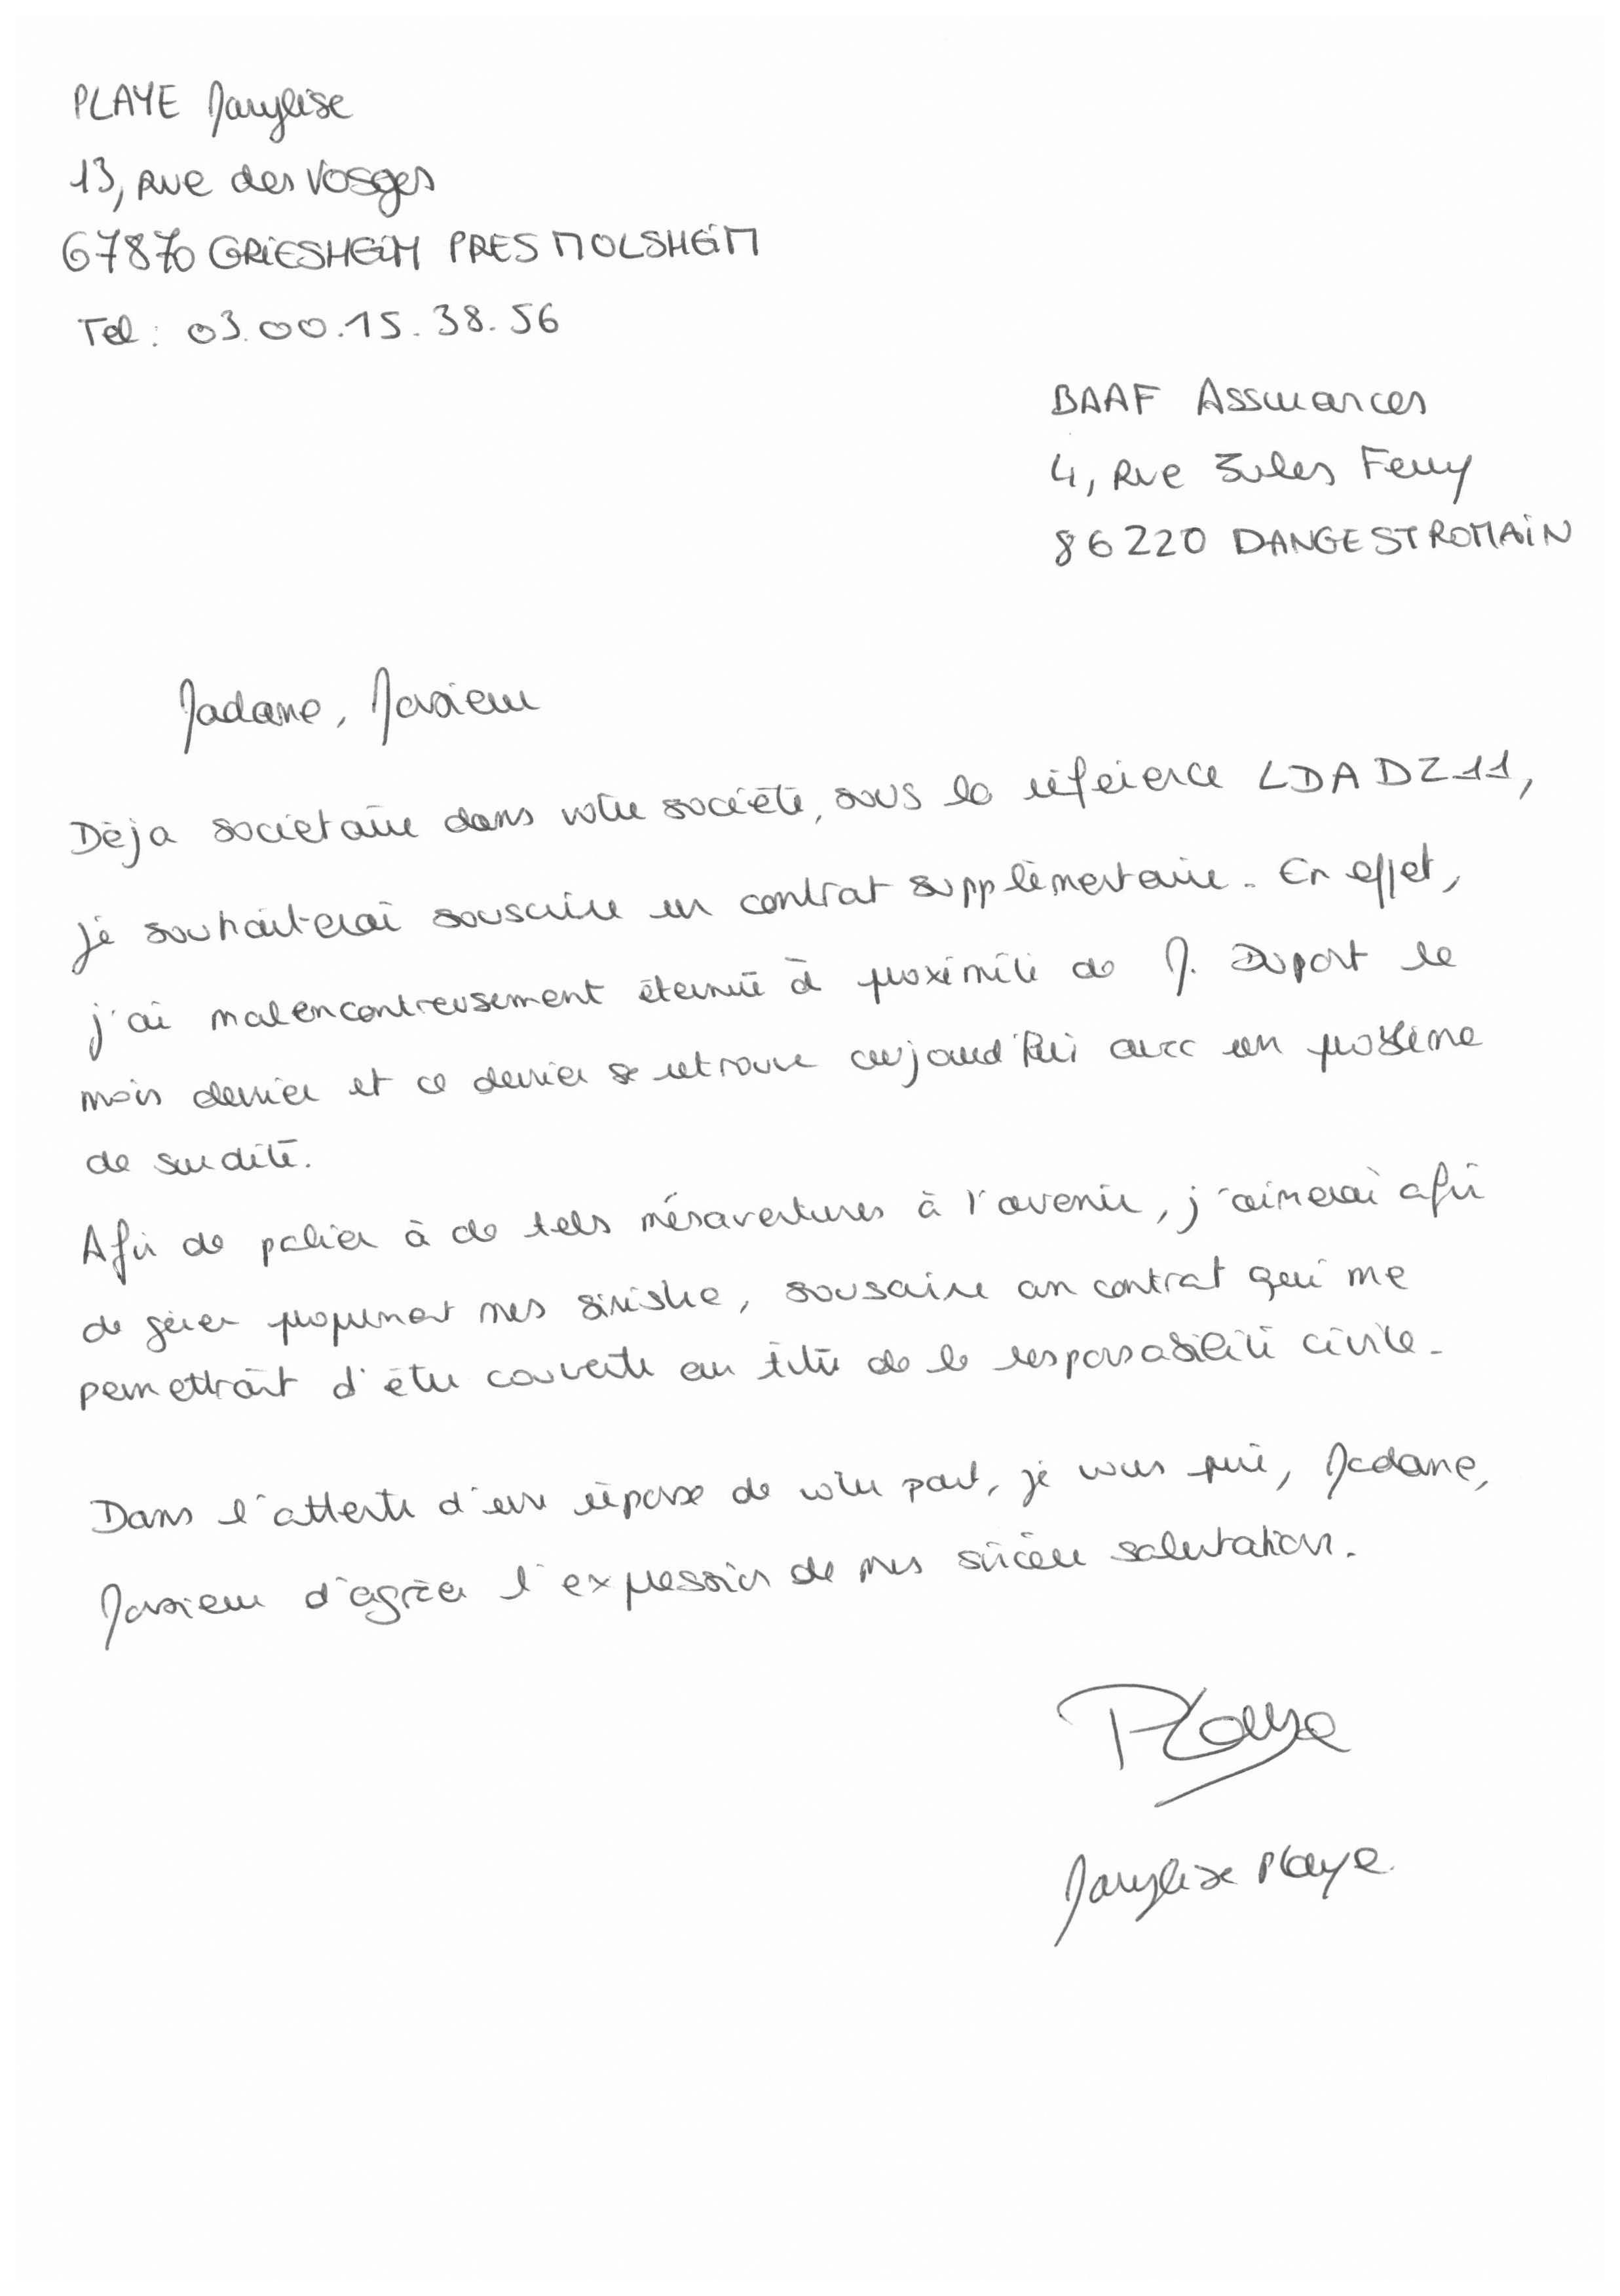 PLAYE Marylise
13, rue des Vosges
67870 GRIESHEIM PRES MOLSHEIM
Tel : 03.00.15.38.56
BAAF Assurances
4, Rue Jules Ferry
86220 DANGE ST ROMAIN
Madame, Monsieur
Déja societaire dans votre société, sous la référence LDADZ11,
je souhaiterai souscrire un contrat supplémentaire. En effet,
j'ai malencontreusement éternué à proximité de M. Dupont le
mois dernier et ce dernier se retrouve aujourd'hui avec un problème
de surdité.
Afin de palier à de tels mésaventures à l'avenir, j'aimerai afin
de gérer proprement mes sinistre, souscrire un contrat qui me
permettrait d'être couverte au titre de la responsabilité civile.
Dans l'attente d'une réponse de votre part, je vous prie, Madame,
Monsieur d'agréer l'expression de mes sincère salutation.
Playe
Marylise Playe